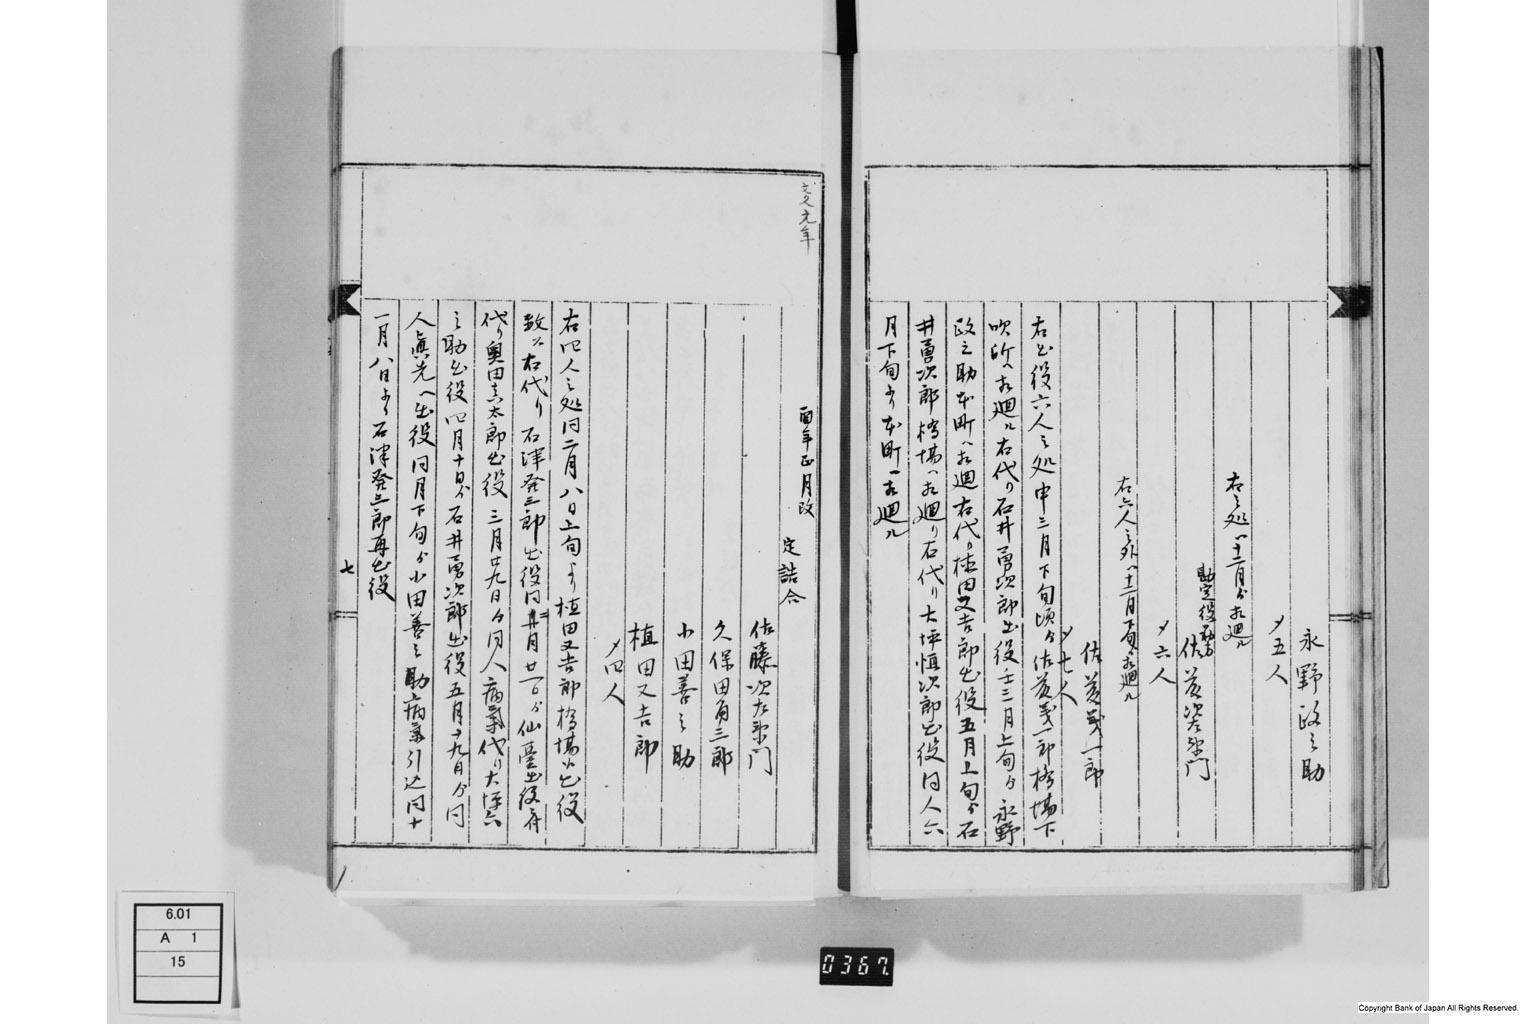 永野政之助
〆五人
右之処八十一月ゟ相廻ル
勘定役
佐藤次左衛門
〆六人
右六人之外八十二月下旬相廻ル
佐藤義一郎
〆七人
右出役六人之処申三月下旬頃ゟ佐藤義一郎橋場下
吹所へ相廻ル右代り石井勇次郎出役壬三月上旬ゟ永野
政之助本町へ相廻右代り植田又吉郎出役五月上旬ゟ石
井勇次郎橋場へ相廻り右代り大坪恒次郎出役同人六
月下旬より本町へ相廻ル
文久元年
酉年正月改
定詰合
佐藤次左衛門
久保田角三郎
小田善之助
植田又吉郎
〆四人
右四人之処同二月八日上旬より植田又吉郎橋場へ出役
致ス右代り石津発三郎出役同月廿一日ゟ仙臺出役
代り奥田喜太郎出役三月廿九日ゟ同人病氣代り大坪六
之助出役四月十日ゟ石井勇次郎出役五月十九日ゟ同
人眞先へ出役同月下旬ゟ小田善之助病氣引込同十
一月八日より石津発三郎再出役
七
6.01
A 1
15
0367.
Copyright Bank of Japan All Rights Reserved.